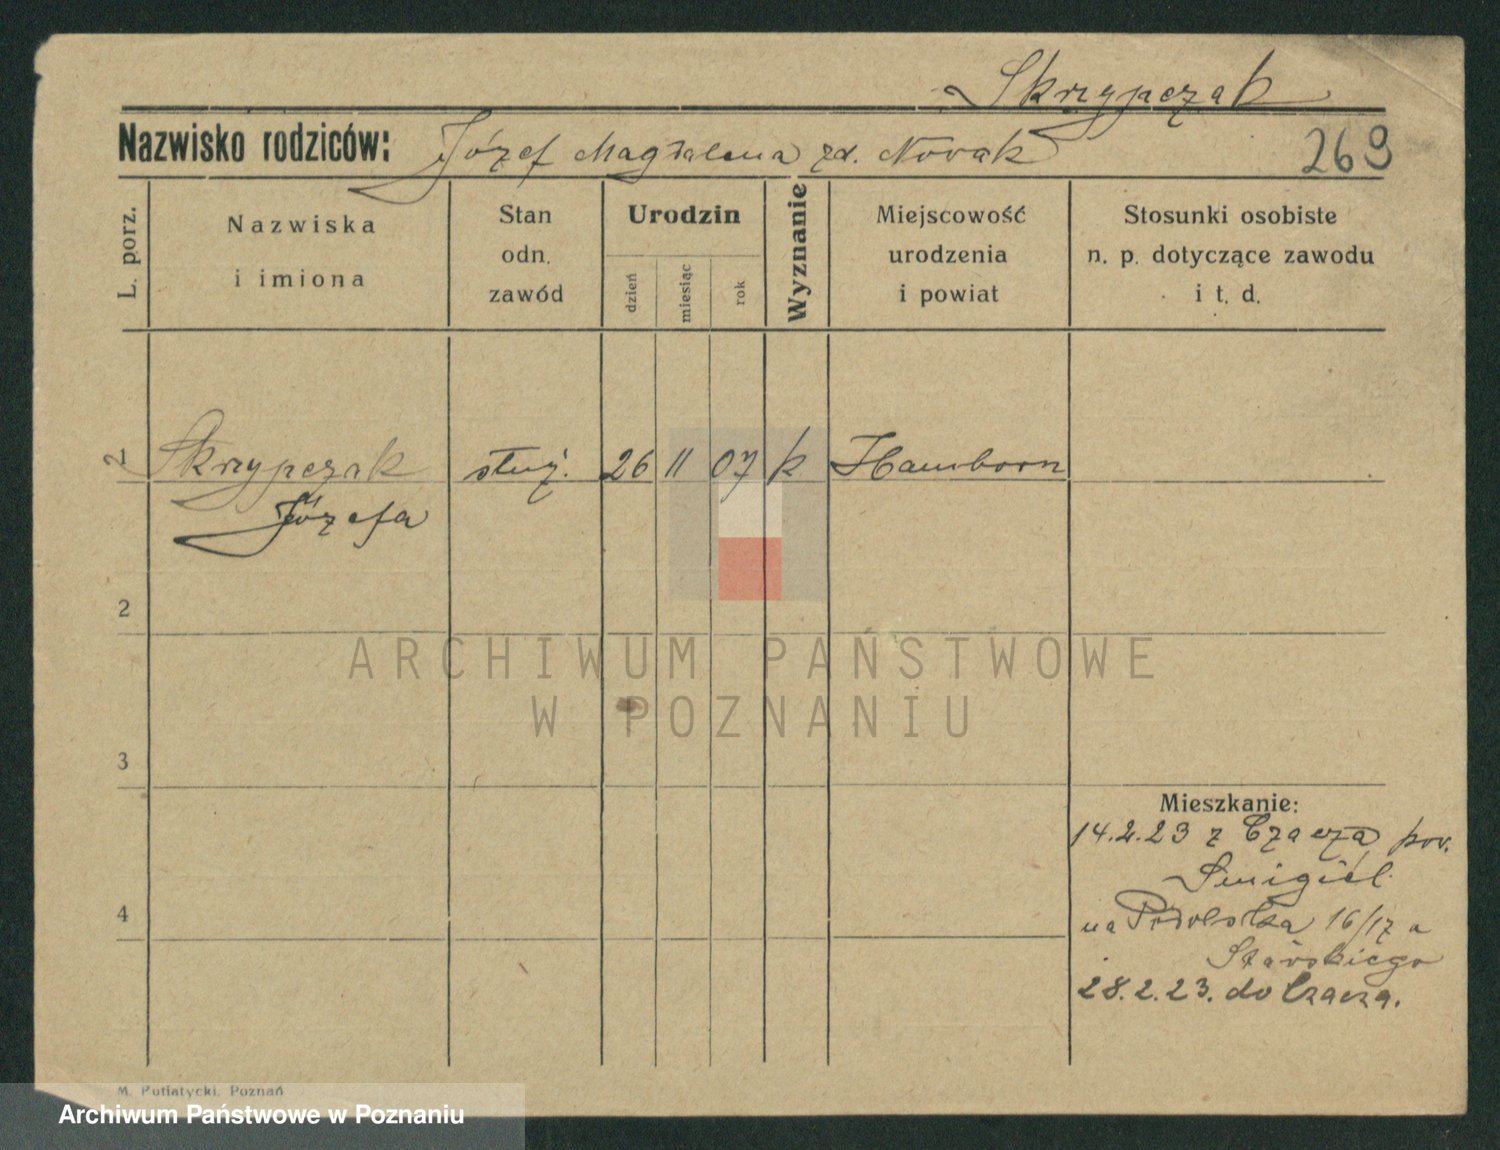 Skrzypczak
Nazwisko rodziców: Józef Magdalena zd. Nowak
269
L. porz.
Nazwiska
i imiona
Stan
odn.
zawód
Urodzin
dzień
miesiąc
rok
Wyznanie
Miejscowość
urodzenia
i powiat
Stosunki osobiste
n. p. dotyczące zawodu
i t. d.
Skrzypczak służ. 26 11 07 k Hamborn
Józefa
2
3
4
Mieszkanie:
14.2.23 z Czacza pow.
Śmigiel
na Podolska 16/17 a
28.2.23. do Czacza.
ARCHIWUM PAŃSTWOWE
W POZNANIU
M. Putiatycki, Poznań
Archiwum Państwowe w Poznaniu